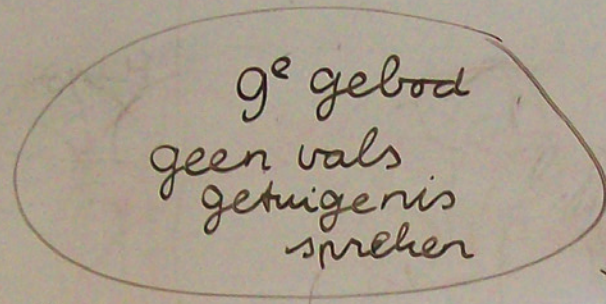 9e gebod
geen vals
getuigenis
spreken